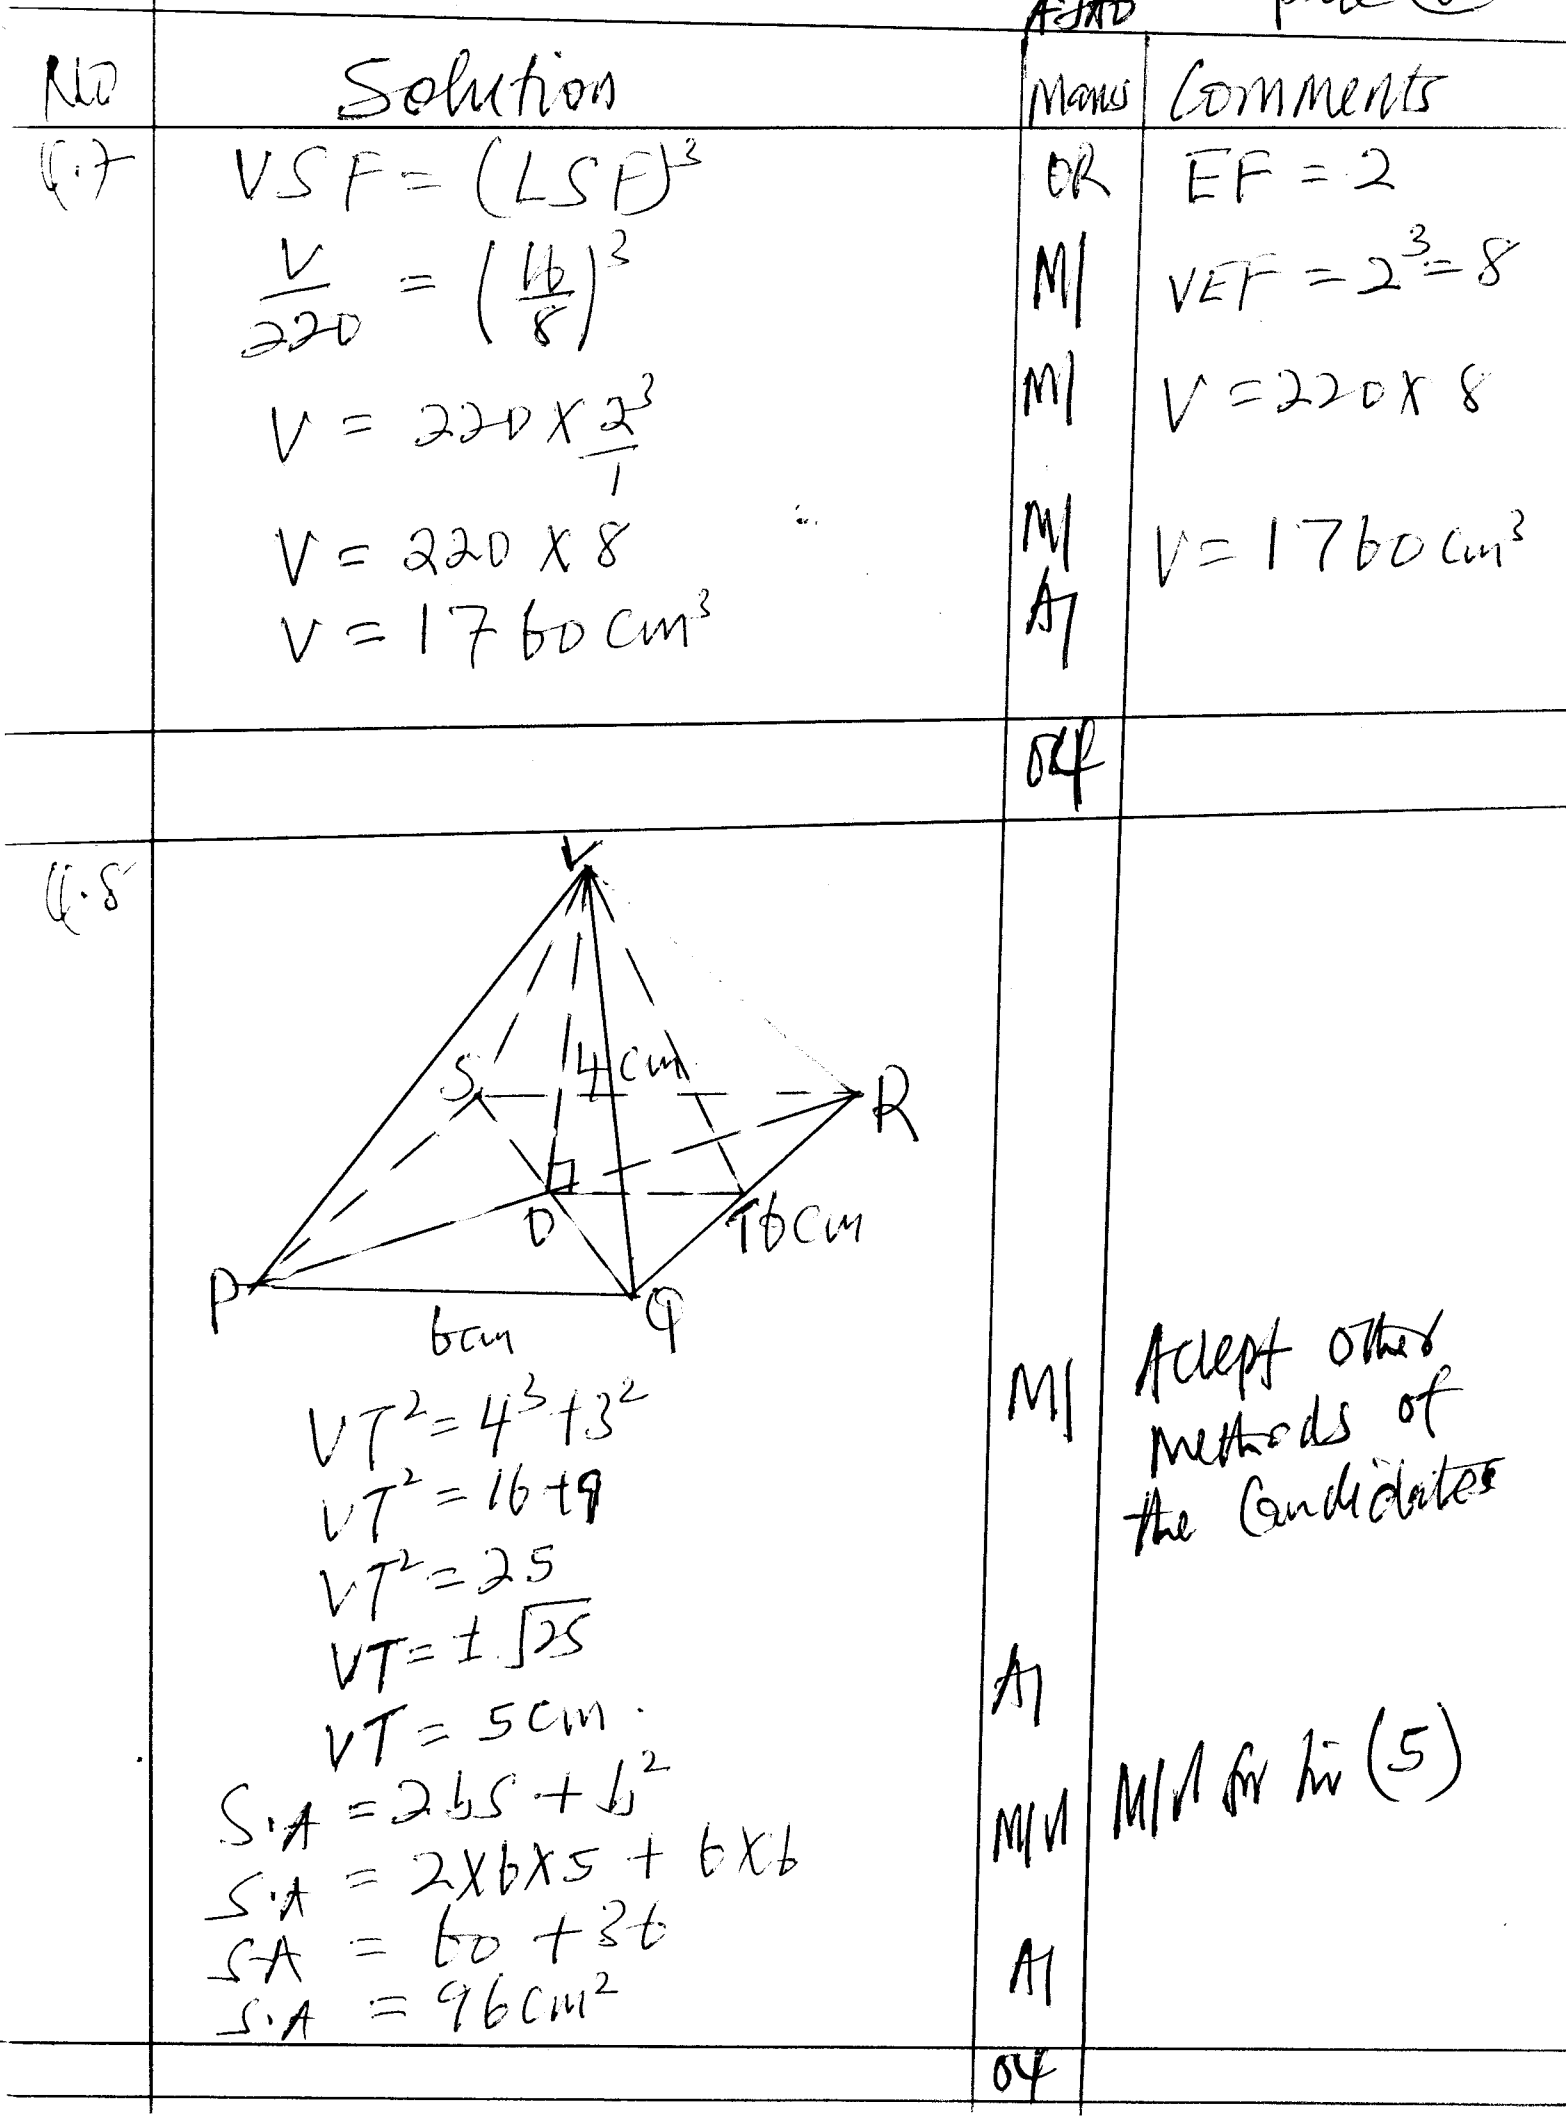 NO Solution Marks Comments
Q.7 VSF = (LSF)³ OR EF = 2
V/220 = (16/8)³ M1 VEF = 2³ = 8
V = 220 X 2³/1 M1 V = 220 X 8
V = 220 X 8 M1 V = 1760 cm³
V = 1760 cm³ A1
04
Q.8
V
S 4cm R
O T 6cm
P Q
6cm
VT² = 4³ + 3² M1 Accept other
methods of
VT² = 16 + 9 the Candidates
VT² = 25
VT = ± √25
VT = 5cm. A1
S.A = 2bs + b² M1 for (5)
S.A = 2X6X5 + 6X6
SA = 60 + 36
S.A = 96cm² A1
04